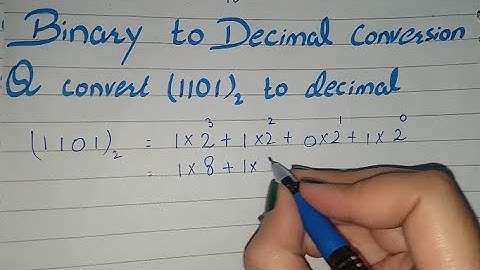 Binary to Decimal Conversion
Q convert (1101)₂ to decimal
(1101)₂ = 1×2³ + 1×2² + 0×2¹ + 1×2⁰
= 1×8 + 1×